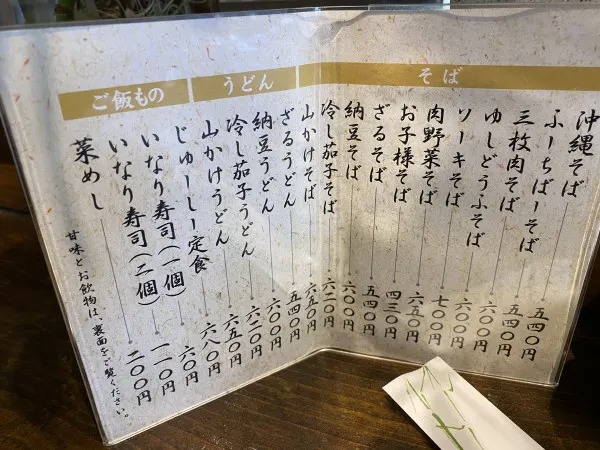 そば
沖縄そば 五四〇円
ふーちばーそば 五四〇円
三枚肉そば 六〇〇円
ゆしどうふそば 六〇〇円
ソーキそば 七〇〇円
肉野菜そば 六五〇円
お子様そば 四三〇円
ざるそば 五四〇円
納豆そば 六〇〇円
冷し茄子そば 六二〇円
山かけそば 六五〇円
うどん
ざるうどん 五四〇円
納豆うどん 六〇〇円
冷し茄子うどん 六二〇円
山かけうどん 六五〇円
ご飯もの
じゅーしー定食 六八〇円
いなり寿司(一個) 六〇円
いなり寿司(二個) 一一〇円
菜めし 二〇〇円
甘味とお飲物は、裏面をご覧ください。